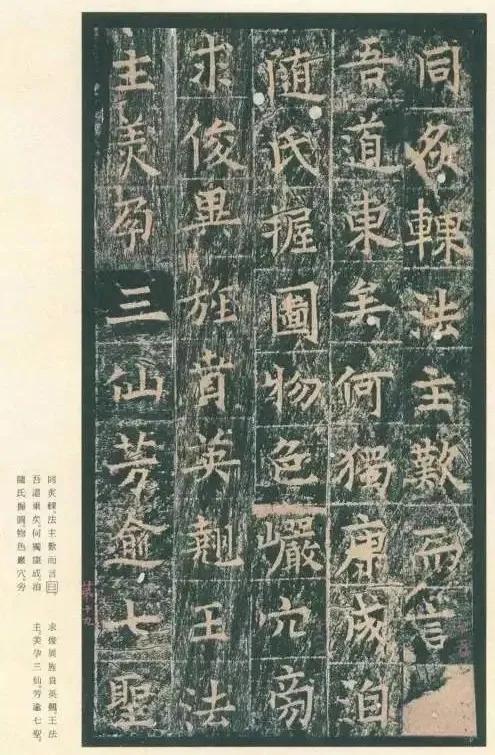 同炙輠法主歎而言
吾道東矣何獨康成洎
隨氏握圖物色巖穴旁
求俊異旌賁英翹王法
主美孕三仙芳愈七聖
第十九
同炙輠。法主歎而言曰
吾道東矣、何獨康成。洎
隨氏握圖、物色巖穴、旁
求俊異、旌賁英翹。王法
主、美孕三仙、芳逾七聖。